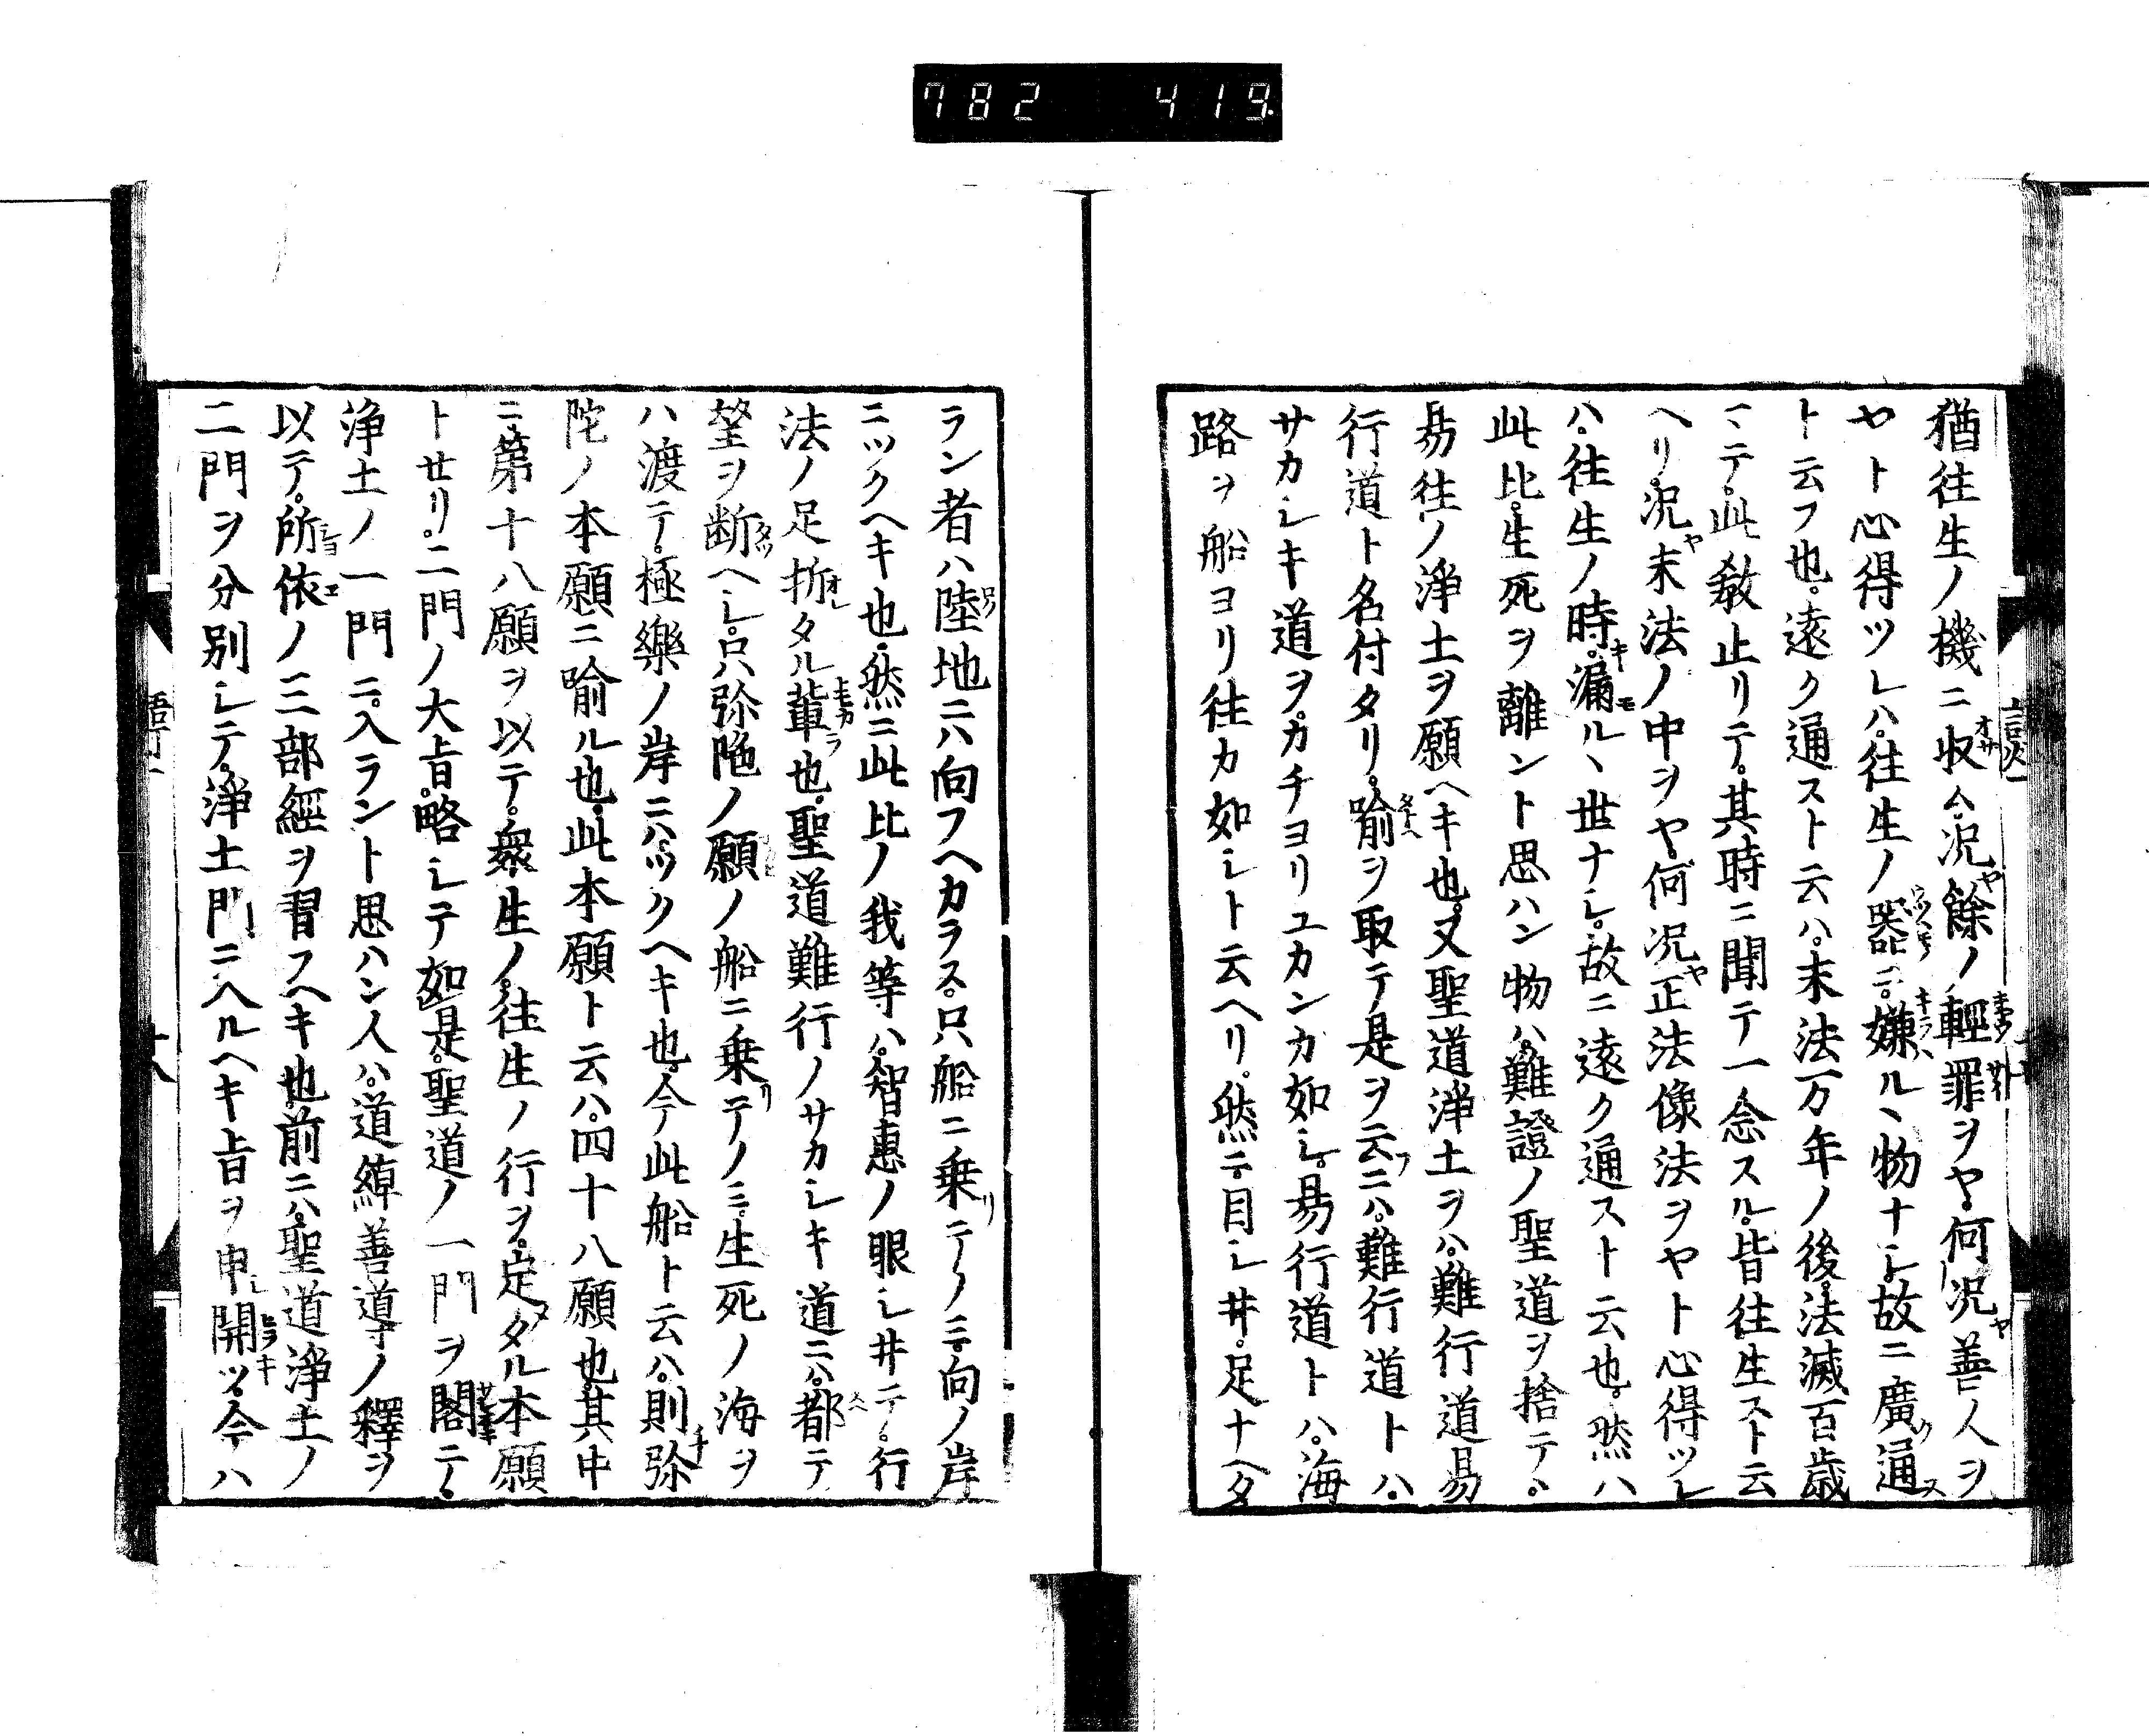 782 419
猶往生ノ機ニ収ム。况餘ノ輕罪ヲヤ。何况善人ヲ
ヤト心得ツレハ。往生ノ器ニ。嫌ルヽ物ナシ。故ニ廣通
ト云フ也。遠ク通スト云ハ。末法万年ノ後。法滅百歳
マテ。此教止リテ。其時ニ聞テ一念スル。皆往生スト云
ヘリ。况末法ノ中ヲヤ。何况正法像法ヲヤト心得ツレ
ハ。往生ノ時。漏ルヽ世ナシ。故ニ遠ク通スト云也。然ハ
此比。生死ヲ離ント思ハン物ハ。難證ノ聖道ヲ捨テ。
易往ノ浄土ヲ願ヘキ也。又聖道浄土ヲハ。難行道易
行道ト名付タリ。喩ヲ取テ是ヲ云ニハ。難行道トハ。
サカシキ道ヲ。カチヨリユカンカ如シ。易行道トハ。海
路ヲ船ヨリ往カ如シト云ヘリ。然ニ目シ井。足ナヘタ
ラン者ハ陸地ニハ向フヘカラス。只船ニ乗テノミ。向ノ岸
ニツクヘキ也。然ニ此比ノ我等ハ。智惠ノ眼シ井テ。行
法ノ足折タル輩也。聖道難行ノサカシキ道ニハ。都テ
望ヲ断ヘシ。只弥陁ノ願ノ船ニ乗テノミ。生死ノ海ヲ
ハ渡テ。極樂ノ岸ニハツクヘキ也。今此船ト云ハ。則弥
陀ノ本願ニ喩ル也。此本願ト云ハ。四十八願也。其中
ニ。第十八願ヲ以テ。衆生ノ。往生ノ行ヲ。定タル本願
トセリ。二門ノ大旨。略シテ如是。聖道ノ一門ヲ閣テ。
浄土ノ一門ニ。入ラント思ハン人ハ。道綽善導ノ釋ヲ
以テ。所依ノ三部經ヲ習フヘキ也。前ニハ。聖道浄土ノ
二門ヲ分別シテ。浄土門ニ入ルヘキ旨ヲ申開ツ。今ハ